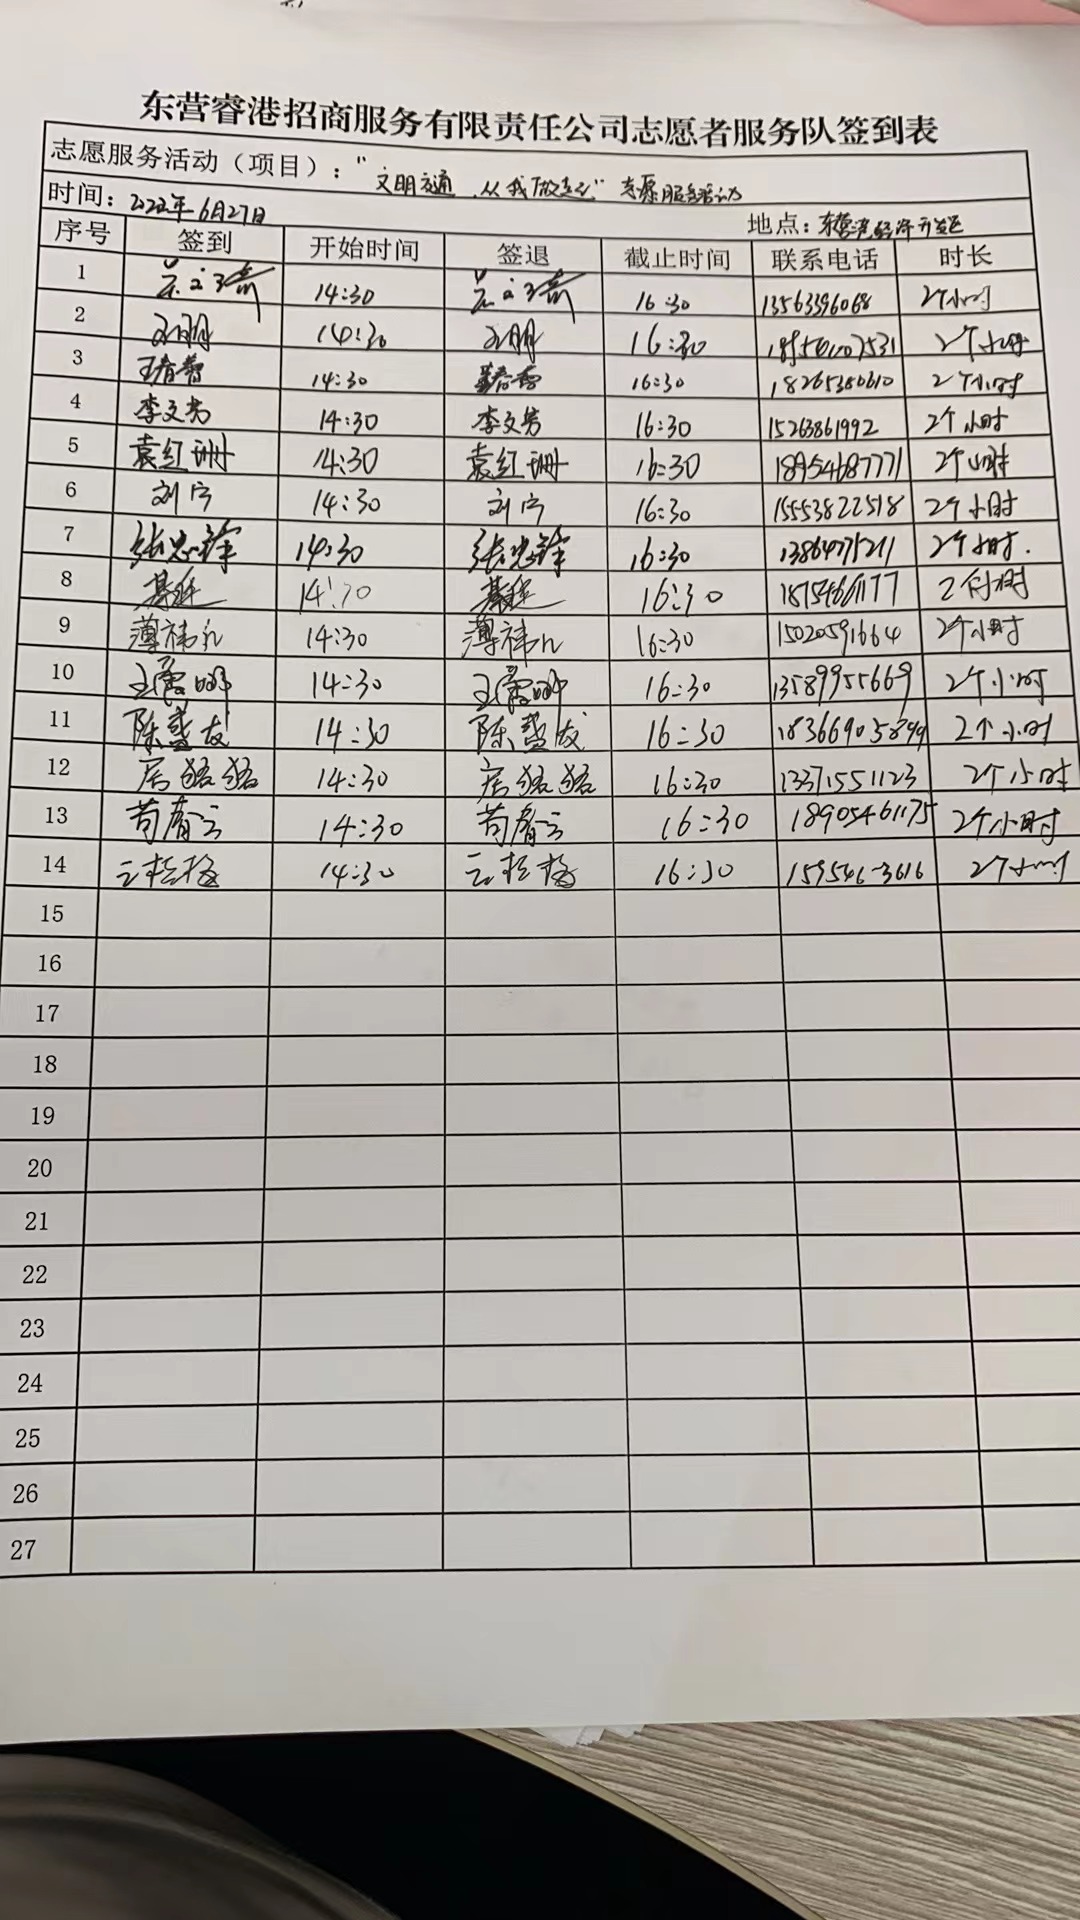 东营睿港招商服务有限责任公司志愿者服务队签到表
志愿服务活动（项目）："文明交通，从我做起" 志愿服务活动
时间：2022年6月27日 地点：东营港经济开发区
序号 签到 开始时间 签退 截止时间 联系电话 时长
1 14:30 16:30 13563396068 2个小时
2 刘明 14:30 刘明 16:30 2个小时
3 王春霞 14:30 16:30 18265380610 2个小时
4 李文芳 14:30 李文芳 16:30 15263861992 2个小时
5 袁红珊 14:30 袁红珊 16:30 18954687771 2个小时
6 刘宁 14:30 刘宁 16:30 15553822518 2个小时
7 张忠锋 14:30 张忠锋 16:30 13864775211 2个小时.
8 14:30 16:30 18754661177 2个小时
9 薄祎凡 14:30 薄祎凡 16:30 15020591664 2个小时
10 14:30 16:30 13589955669 2个小时
11 陈盛友 14:30 陈盛友 16:30 18366905899 2个小时
12 14:30 16:30 13371551123 2个小时
13 苟春云 14:30 苟春云 16:30 18905461175 2个小时
14 14:30 16:30 2个小时
15
16
17
18
19
20
21
22
23
24
25
26
27